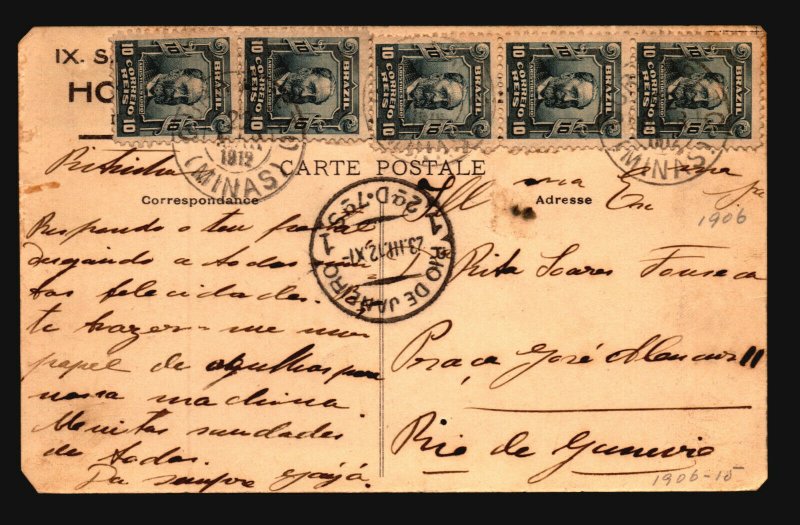 IX. S.
HO
10 BRAZIL 10
CORREIO
REIS
10 BRAZIL 10
CORREIO
REIS
10 BRAZIL 10
CORREIO
REIS
10 BRAZIL 10
CORREIO
REIS
10 BRAZIL 10
CORREIO
REIS
1912
(MINAS)
(MINAS)
CARTE POSTALE
Correspondance
Adresse
RIO DE JANEIRO
23.III.12.XI
1906
Respondo o teu postal
desejando a todos
tas felicidades.
te trazer-me um
papel de agulhas para
nossa machina.
Muitas saudades
de todos.
Da sempre
Rita Soares Fonseca
Praça José Alencar 11
Rio de Janeiro
1906-15